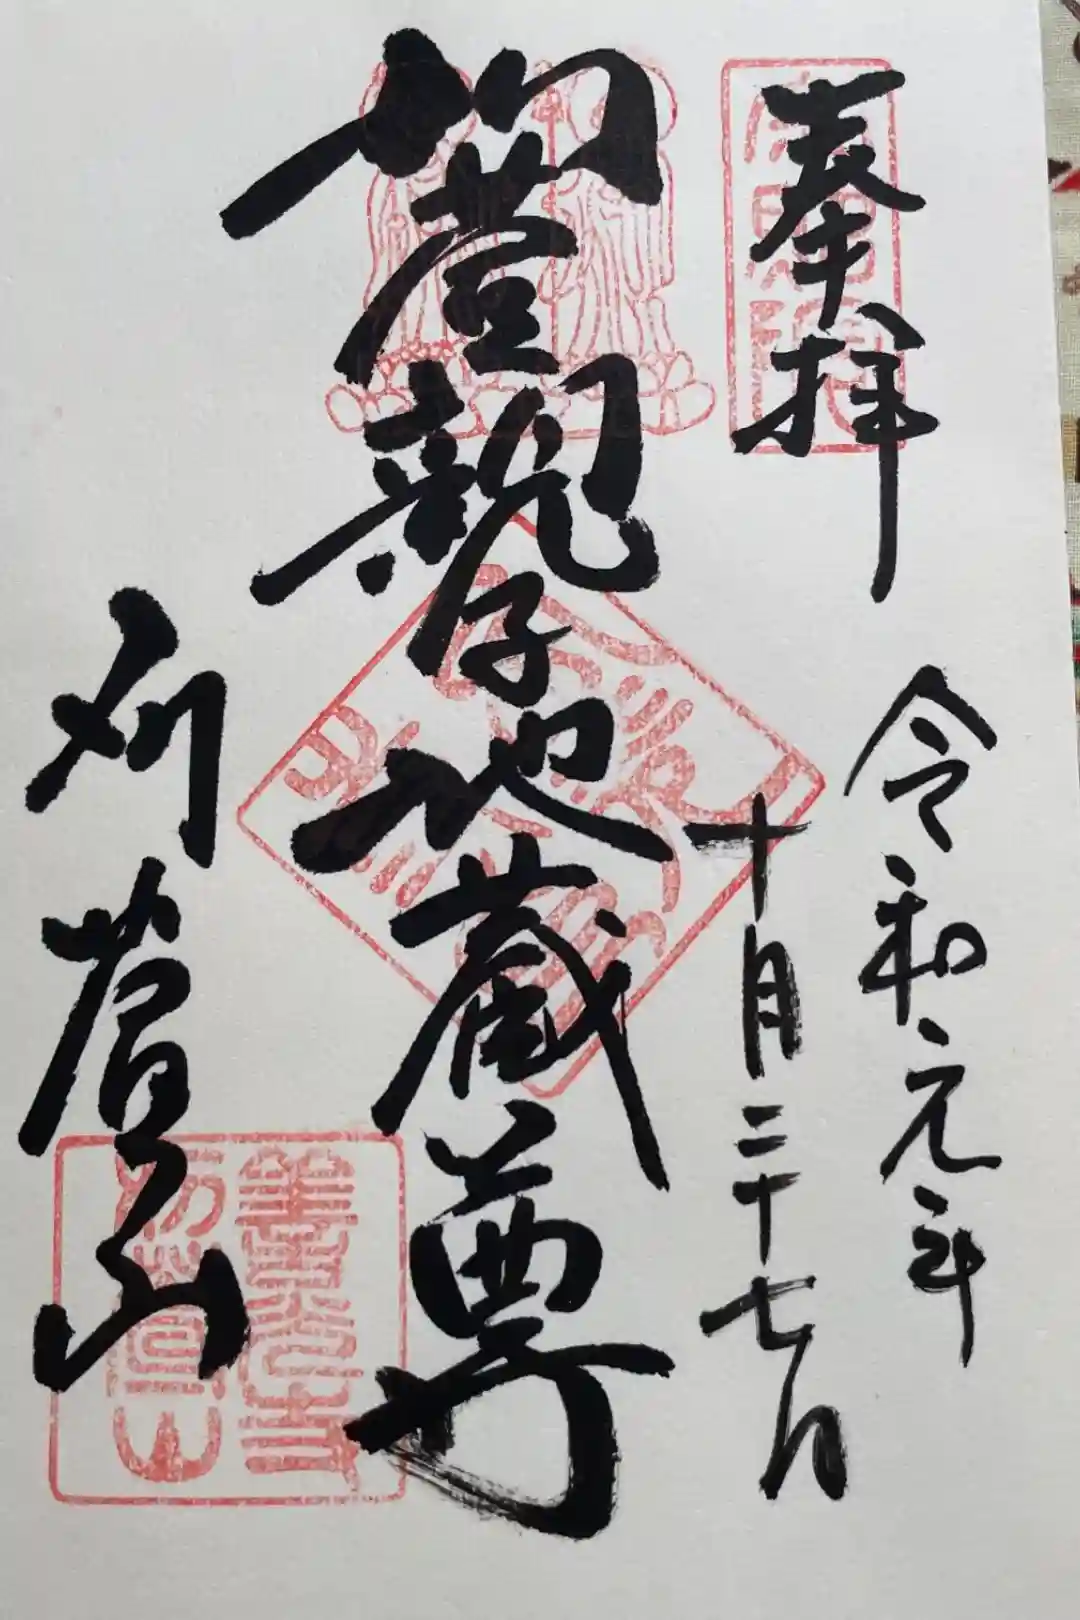 奉拝
令和元年
十月二十七日
刈萱親子地蔵尊
刈萱山
善光寺
刈萱山